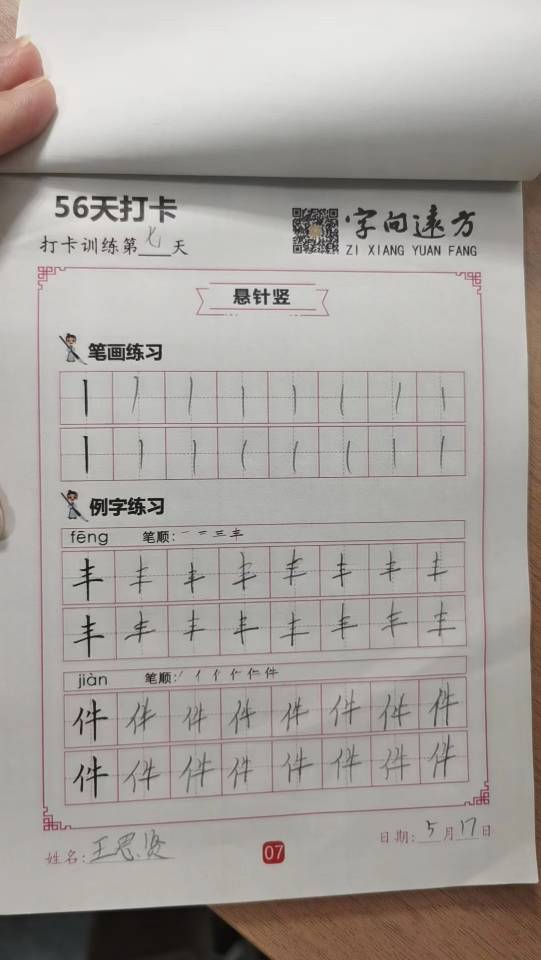 56天打卡
打卡训练第七天
字向远方
ZI XIANG YUAN FANG
悬针竖
笔画练习
例字练习
fēng 笔顺: 一 二 三 丰
丰 丰 丰 丰 丰 丰 丰 丰
丰 丰 丰 丰 丰 丰 丰 丰
jiàn 笔顺: 件
件 件 件 件 件 件 件 件
件 件 件 件 件 件 件 件
姓名: 王思贤
07
日期: 5月17日